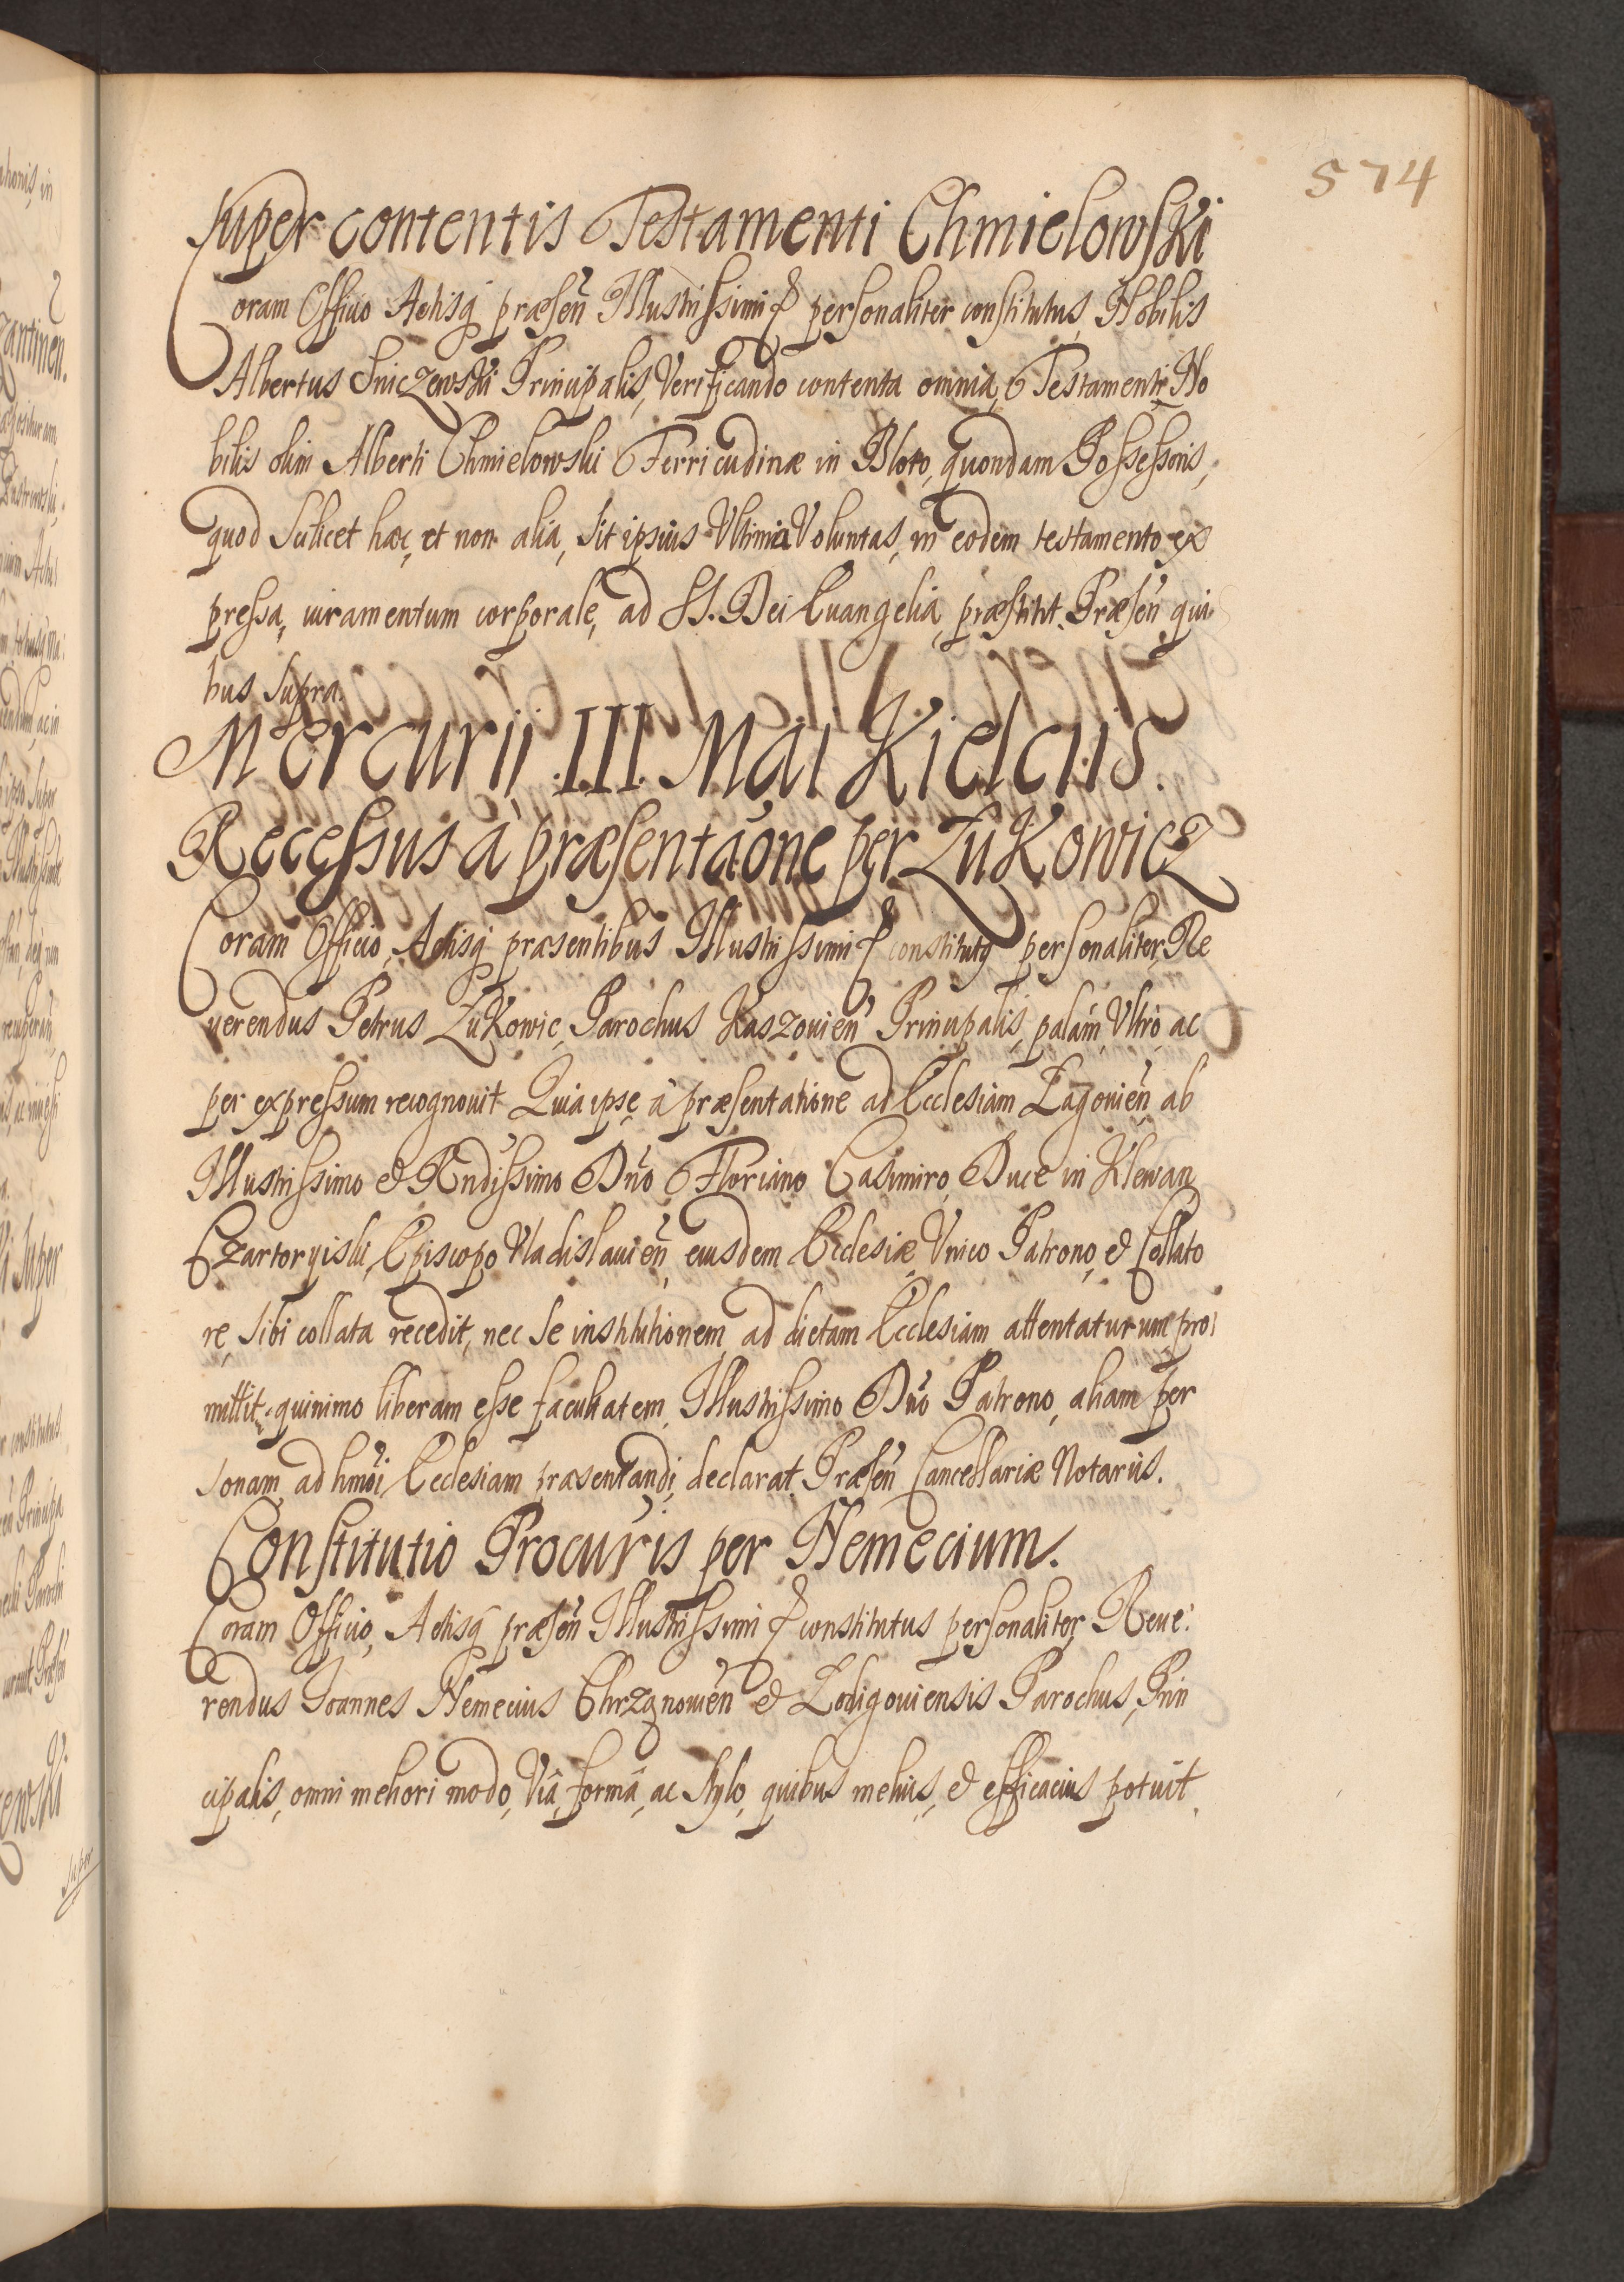 574
Super contentis Testamenti Chmielowski
Coram Officio Actisq præsen Illustrissimi personaliter constitutus, Nobilis
Albertus Sniczewski Principalis, Verificando contenta omnia, Testamenti No
bilis olim Alberti Chmielowski Ferricudinæ in Bloto, quondam Possessoris,
quod Scilicet hæc, et non alia, Sit ipsius Ultima Voluntas, in eodem testamento ex
pressa, iuramentum corporale, ad SS. Dei Euangelia, præstitit. Præsen qui
bus Supra.
Mercurii .III. Mai Kielciis.
Recessus à præsentaone per ZuKowicz
Coram Officio, Actisq præsentibus Illustrissimi constitutq personaliter, Re
uerendus Petrus ZuKowic, Parochus Kaszouien Principalis, palam, Vltro, ac
per expressum recognouit. Quia ipse à præsentatione ad Ecclesiam Łagouien, ab
Illustrissimo & Rndissimo Dno Floriano Casimiro, Duce in Klewan
Czartoryiski, Episcopo Vladislauien, eiusdem Ecclesiæ, Vnico Patrono, & Collato
re, Sibi collata recedit, nec Se institutionem, ad dictam Ecclesiam attentaturum, pro
mittit. quinimo liberam esse facultatem, Illustrissimo Dno Patrono, aliam per
sonam, ad hmoi Ecclesiam præsentandi, declarat. Præsen Cancellariæ Notariis.
Constitutio Procuris per Nemecium.
Coram Officio, Actisq præsen Illustrissimi constitutus personaliter Reue
rendus Joannes Nemecius Chrząnouien & Lodigouiensis Parochus, Prin
cipalis, omni meliori modo, Viâ, formâ, ac Stylo, quibus melius, & efficacius potuit
Super